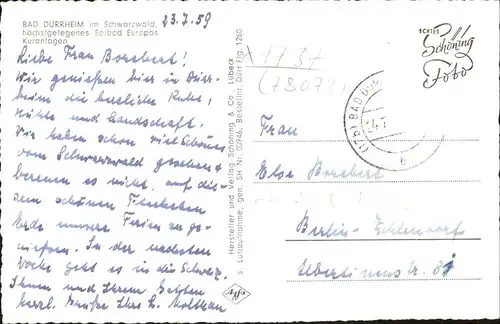 BAD DÜRRHEIM im Schwarzwald, 23.7.59
höchstgelegenes Solbad Europas
Kuranlagen
Liebe Frau Borebert!
Wir genießen hier in Dürr-
heim die herrliche Ruhe,
Kühle und Landschaft.
Wir haben schon viel Schönes
vom Schwarzwald gesehen &
bereuen es nicht, auf die-
sem schönen Fleckchen
Erde unsere Ferien zu ge-
nießen. In der nächsten
Woche geht es in die Schweiz.
Ihnen und Ihrem Gatten
herzl. Grüße Ihre
Hersteller und Verlag Schöning & Co., Lübeck
s. Luftaufnahme, gen. SH Nr. Bestellnr. Dürr Flg. 1280
Agfa
A 1737
(78073)
ECHTES
Schöning
Foto
(17b) BAD DÜRR
24.7
b
Frau
Else Borebert
Berlin-Zehlendorf
Albertinenstr.